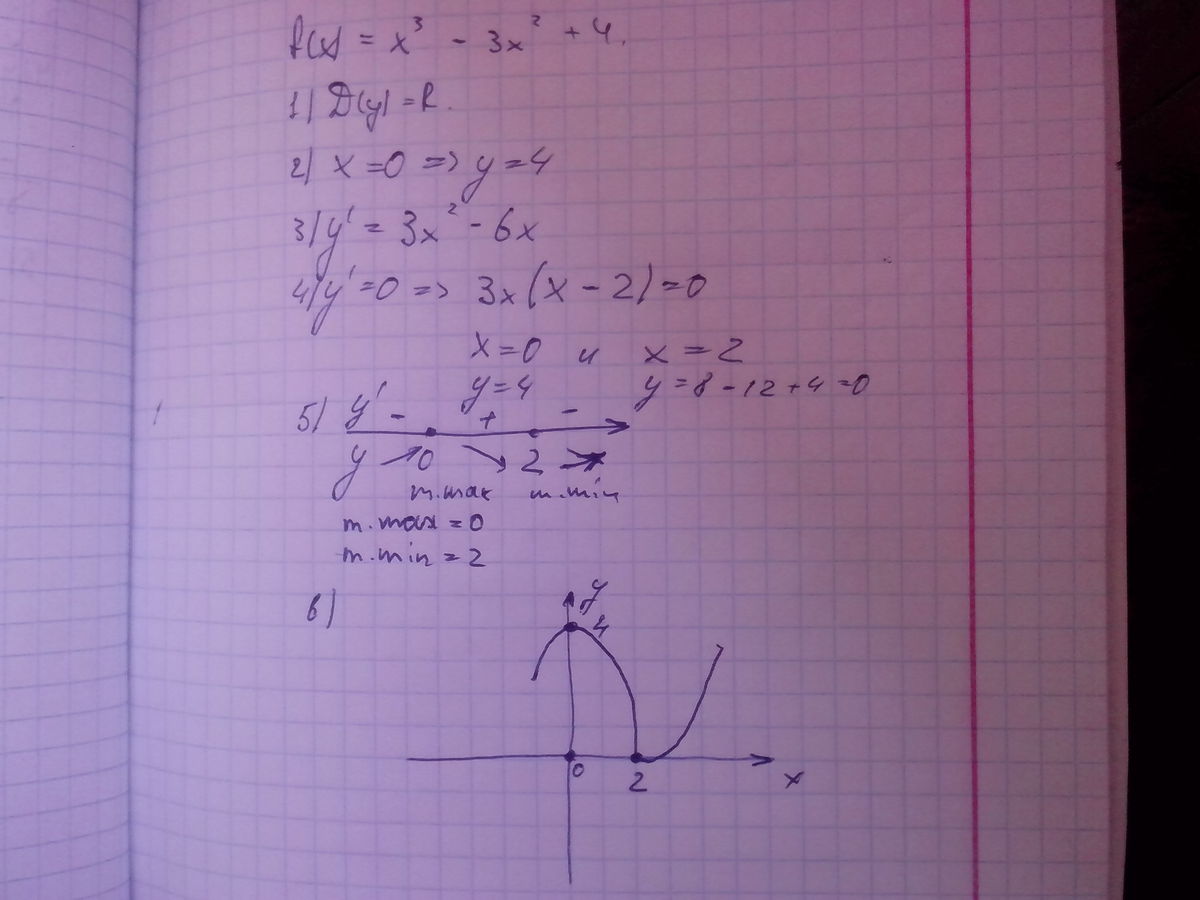 f(x) = x³ - 3x² + 4.
1) D(y) = R.
2) x = 0 => y = 4
3) y' = 3x² - 6x
4) y' = 0 => 3x(x - 2) = 0
x = 0 и x = 2
y = 4 y = 8 - 12 + 4 = 0
5) y' - + -
y 0 2
т.max т.min
т.max = 0
т.min = 2
6)
y
4
0 2 x